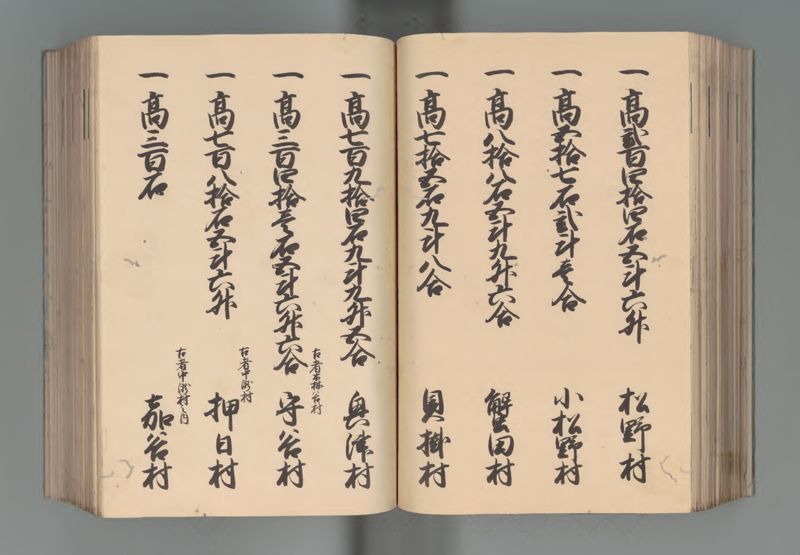 一 高弐百四拾四石五斗六升 松野村
一 高五拾七石弐斗壱合 小松野村
一 高八拾八石五斗九升六合 蟹田村
一 高七拾五石九斗八合 貝掛村
一 高七百九拾四石九斗九升五合 奥津村
古者木 谷村
一 高三百四拾壱石五斗六升六合 守谷村
古者中 村
一 高七百八拾石五斗六升 押日村
古者中 村之内
一 高三百石 茹谷村